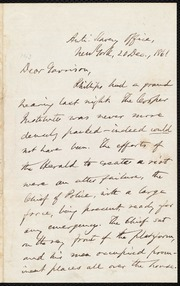 Anti-Slavery Office,
New York, 20 Dec., 1861
Dear Garrison,
Phillips had a grand
hearing last night. The Cooper
Institute was never more
densely packed—indeed could
not have been. The efforts of
the Herald to create a riot
were an utter failure. The
Chief of Police, with a large
force, being present ready for
any emergency. The Chief sat
on the front of the platform,
and his men occupied promi-
nent places all over the house.